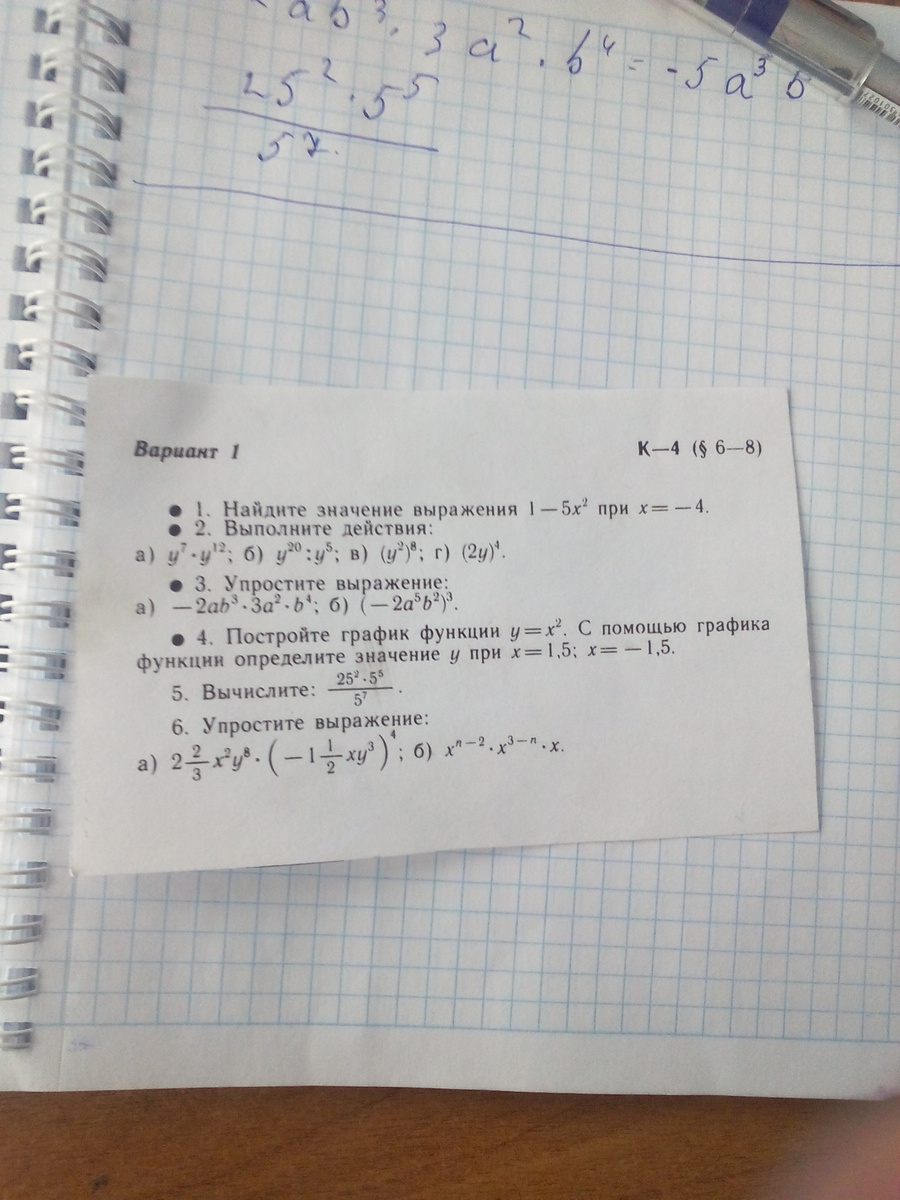 ab³ · 3a² · b⁴ = -5a³b
25² · 5⁵
5⁷.
Вариант 1 К—4 (§ 6—8)
● 1. Найдите значение выражения 1 — 5x² при x = — 4.
● 2. Выполните действия:
а) y⁷ · y¹²; б) y²⁰ : y⁵; в) (y²)⁸; г) (2y)⁴.
● 3. Упростите выражение:
а) — 2ab³ · 3a² · b⁴; б) (— 2a⁵b²)³.
● 4. Постройте график функции y = x². С помощью графика
функции определите значение y при x = 1,5; x = — 1,5.
5. Вычислите: 25² · 5⁵ / 5⁷ .
6. Упростите выражение:
а) 2 2/3 x²y⁸ · (— 1 1/2 xy³)⁴; б) xⁿ⁻² · x³⁻ⁿ · x.